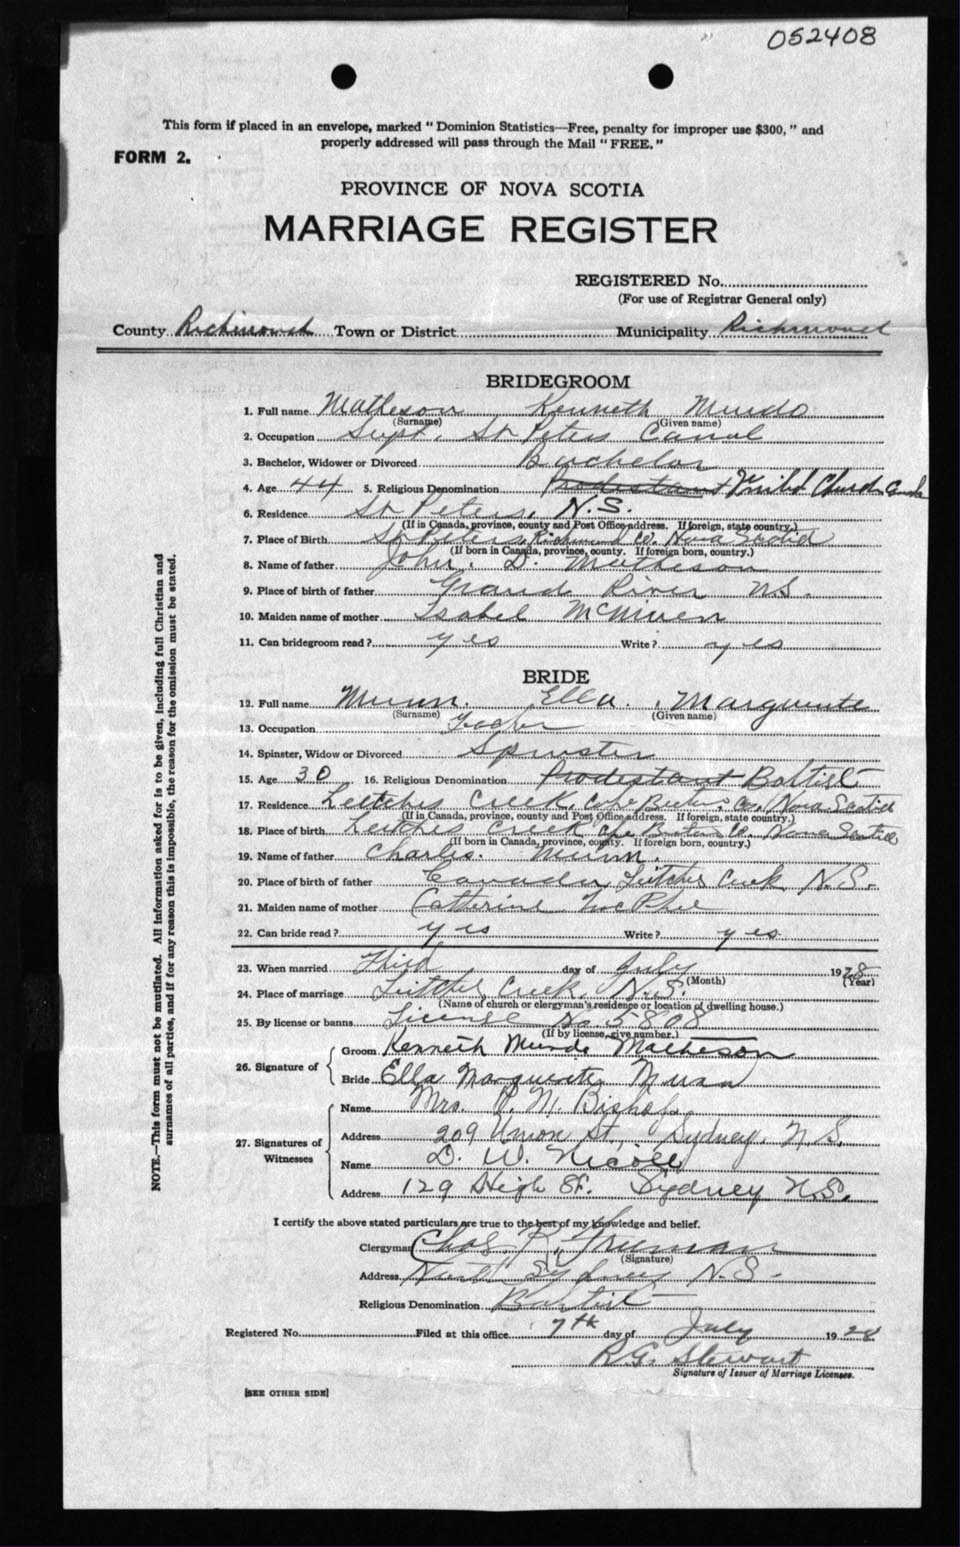 052408
This form if placed in an envelope, marked "Dominion Statistics—Free, penalty for improper use $300," and
properly addressed will pass through the Mail "FREE."
FORM 2.
PROVINCE OF NOVA SCOTIA
MARRIAGE REGISTER
REGISTERED No.
(For use of Registrar General only)
County Richmond Town or District Municipality Richmond
BRIDEGROOM
1. Full name Matheson Kenneth Murdo
(Surname) (Given name)
2. Occupation Supt. St Peters Canal
3. Bachelor, Widower or Divorced Bachelor
4. Age 44 5. Religious Denomination Prodestant United Church Canada
6. Residence St Peters, N.S.
(If in Canada, province, county and Post Office address. If foreign, state country.)
7. Place of Birth St Peters, Richmond Co. Nova Scotia
(If born in Canada, province, county. If foreign born, country.)
8. Name of father John. D. Matheson
9. Place of birth of father Grand River N.S.
10. Maiden name of mother Isabel McNiven
11. Can bridegroom read? yes Write? yes
BRIDE
12. Full name Munn. Ella. Marguerite
(Surname) (Given name)
13. Occupation
14. Spinster, Widow or Divorced Spinster
15. Age 30 16. Religious Denomination Prodestant Baptist
17. Residence Leitches Creek, Cape Breton, Co, Nova Scotia
(If in Canada, province, county and Post Office address. If foreign, state country.)
18. Place of birth Leitches Creek Cape Breton Co. Nova Scotia
(If born in Canada, province, county. If foreign born, country.)
19. Name of father Charles. Munn.
20. Place of birth of father Canada, Leitches Creek N.S.
21. Maiden name of mother Catherine McPhee
22. Can bride read? yes Write? yes
23. When married Third day of July 1928
(Month) (Year)
24. Place of marriage Leitches Creek, N.S.
(Name of church or clergyman's residence or location of dwelling house.)
25. By license or banns License No. 5808
(If by license, give number.)
26. Signature of
Groom Kenneth Murdo Matheson
Bride Ella Marguerite Munn
27. Signatures of Witnesses
Name Mrs. P. M. Bishop
Address 209 Union St., Sydney, N.S.
Name D. W. Nicoll
Address 129 High St. Sydney N.S.
I certify the above stated particulars are true to the best of my knowledge and belief.
Clergyman Chas. R. Freeman
(Signature)
Address North Sydney N.S.
Religious Denomination Baptist
Registered No. Filed at this office 7th day of July 1928
R.G. Stewart
Signature of Issuer of Marriage Licenses.
[SEE OTHER SIDE]
NOTE.—This form must not be mutilated. All information asked for is to be given, including full Christian and
surnames of all parties, and if for any reason this is impossible, the reason for the omission must be stated.